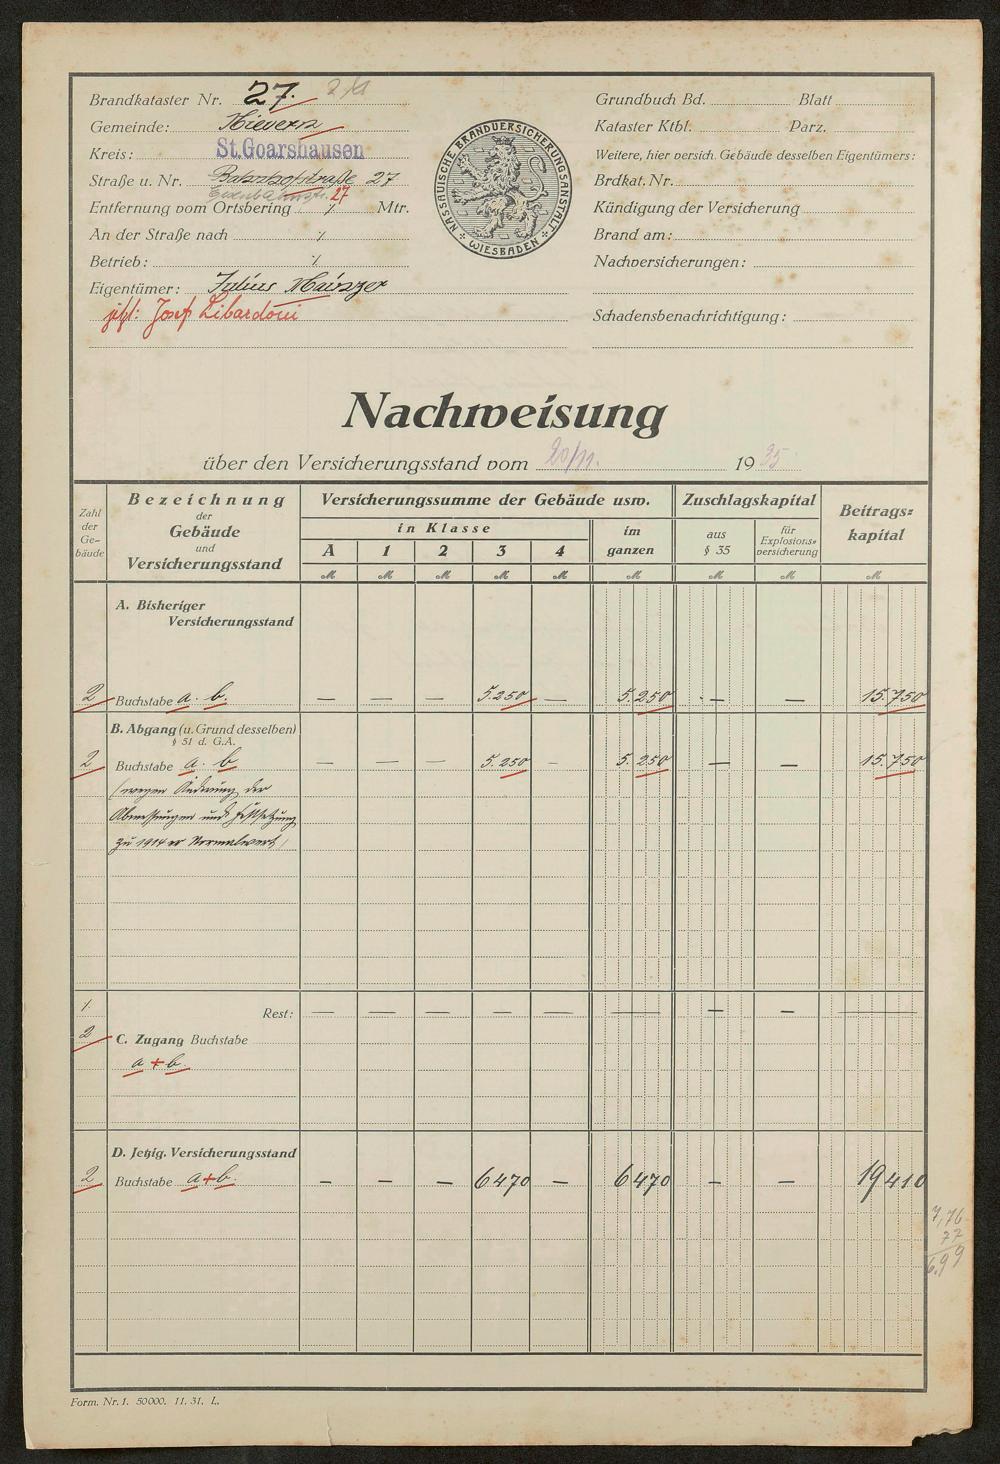 Brandkataster Nr. 27.
Gemeinde: Nievern
Kreis: St. Goarshausen
Straße u. Nr. Bahnhofstraße 27
27
Entfernung vom Ortsbering ⁒ Mtr.
An der Straße nach ⁒
Betrieb: ⁒
Eigentümer: Julius
jetzt: Josef Libardoni
NASSAUISCHE BRANDVERSICHERUNGSANSTALT
WIESBADEN
Grundbuch Bd. Blatt
Kataster Ktbl. Parz.
Weitere, hier versich. Gebäude desselben Eigentümers:
Brdkat. Nr.
Kündigung der Versicherung
Brand am:
Nachversicherungen:
Schadensbenachrichtigung:
Nachweisung
über den Versicherungsstand vom 20/11. 1935
Zahl der Ge-bäude
Bezeichnung der Gebäude und Versicherungsstand
Versicherungssumme der Gebäude usw.
in Klasse
A 1 2 3 4
im ganzen
Zuschlagskapital
aus § 35
für Explosions-versicherung
Beitrags-kapital
ℳ ℳ ℳ ℳ ℳ ℳ ℳ ℳ ℳ
A. Bisheriger
Versicherungsstand
2 Buchstabe a. b. — — — 5.250 — 5.250 — — 15.750
B. Abgang (u. Grund desselben)
§ 51 d. G.A.
2 Buchstabe a. b — — — 5.250 — 5.250 — — 15.750
(wegen Änderung der
Abmessungen und Festsetzung
zu 1914er Normalwert)
⁒ Rest: — — — — — — — — —
2 C. Zugang Buchstabe
a + b.
D. Jetzig. Versicherungsstand
2 Buchstabe a + b. — — — 6470 — 6470 — — 19410
7,76
77
6,99
Form. Nr. 1. 50000. 11. 31. L.